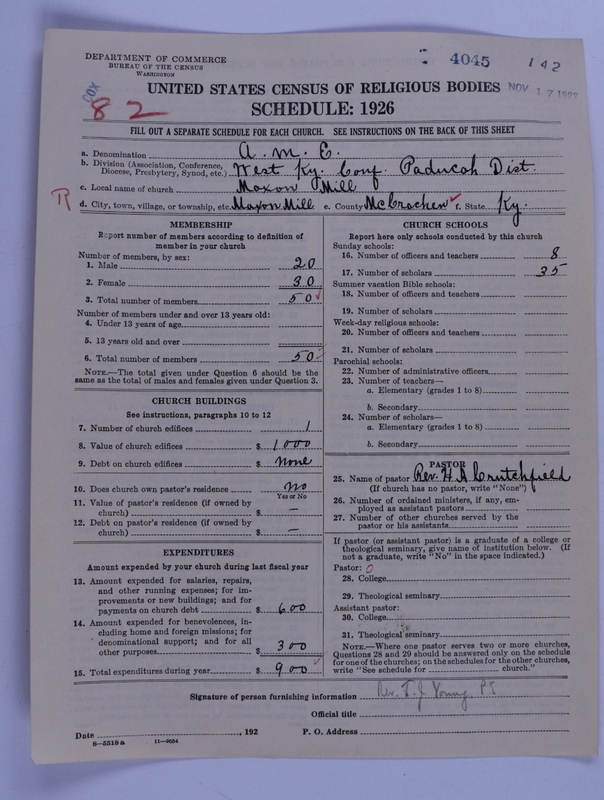 DEPARTMENT OF COMMERCE
BUREAU OF THE CENSUS
WASHINGTON
4045
142
COX
82
UNITED STATES CENSUS OF RELIGIOUS BODIES
NOV 17
SCHEDULE: 1926
FILL OUT A SEPARATE SCHEDULE FOR EACH CHURCH. SEE INSTRUCTIONS ON THE BACK OF THIS SHEET
a. Denomination A. M. E.
b. Division (Association, Conference, Diocese, Presbytery, Synod, etc.) West Ky. Conf. Paducah Dist.
c. Local name of church Maxon Mill
R
d. City, town, village, or township, etc. Maxon Mill e. County McCracken f. State Ky.
MEMBERSHIP
Report number of members according to definition of
member in your church
Number of members, by sex:
1. Male 20
2. Female 30
3. Total number of members 50
Number of members under and over 13 years old:
4. Under 13 years of age
5. 13 years old and over
6. Total number of members 50
NOTE.—The total given under Question 6 should be the
same as the total of males and females given under Question 3.
CHURCH BUILDINGS
See instructions, paragraphs 10 to 12
7. Number of church edifices 1
8. Value of church edifices $ 1000
9. Debt on church edifices $ None
10. Does church own pastor's residence No
Yes or No
11. Value of pastor's residence (if owned by
church) $ —
12. Debt on pastor's residence (if owned by
church) $ —
EXPENDITURES
Amount expended by your church during last fiscal year
13. Amount expended for salaries, repairs,
and other running expenses; for im-
provements or new buildings; and for
payments on church debt $ 600
14. Amount expended for benevolences, in-
cluding home and foreign missions; for
denominational support; and for all
other purposes 300
15. Total expenditures during year $ 900
CHURCH SCHOOLS
Report here only schools conducted by this church
Sunday schools:
16. Number of officers and teachers 8
17. Number of scholars 35
Summer vacation Bible schools:
18. Number of officers and teachers
19. Number of scholars
Week-day religious schools:
20. Number of officers and teachers
21. Number of scholars
Parochial schools:
22. Number of administrative officers
23. Number of teachers—
a. Elementary (grades 1 to 8)
b. Secondary
24. Number of scholars—
a. Elementary (grades 1 to 8)
b. Secondary
PASTOR
25. Name of pastor Rev. H A Crutchfield
(If church has no pastor, write "None")
26. Number of ordained ministers, if any, em-
ployed as assistant pastors
27. Number of other churches served by the
pastor or his assistants
If pastor (or assistant pastor) is a graduate of a college or
theological seminary, give name of institution below. (If
not a graduate, write "No" in the space indicated.)
Pastor: O
28. College
29. Theological seminary
Assistant pastor:
30. College
31. Theological seminary
NOTE.—Where one pastor serves two or more churches,
Questions 28 and 29 should be answered only on the schedule
for one of the churches; on the schedules for the other churches,
write "See schedule for church."
Signature of person furnishing information Rev. T. J. Young P.E
Official title
Date , 192 P. O. Address
8—5518a 11—9054